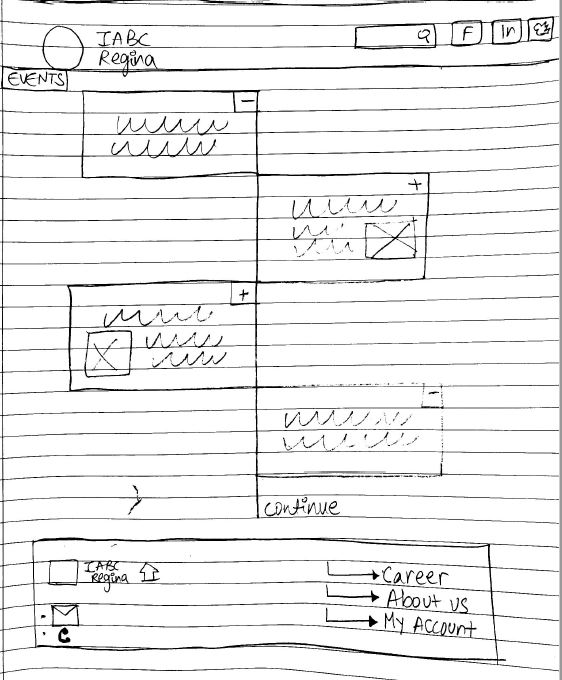 IABC
Regina
F
In
EVENTS
continue
IABC
Regina
Career
About us
My Account